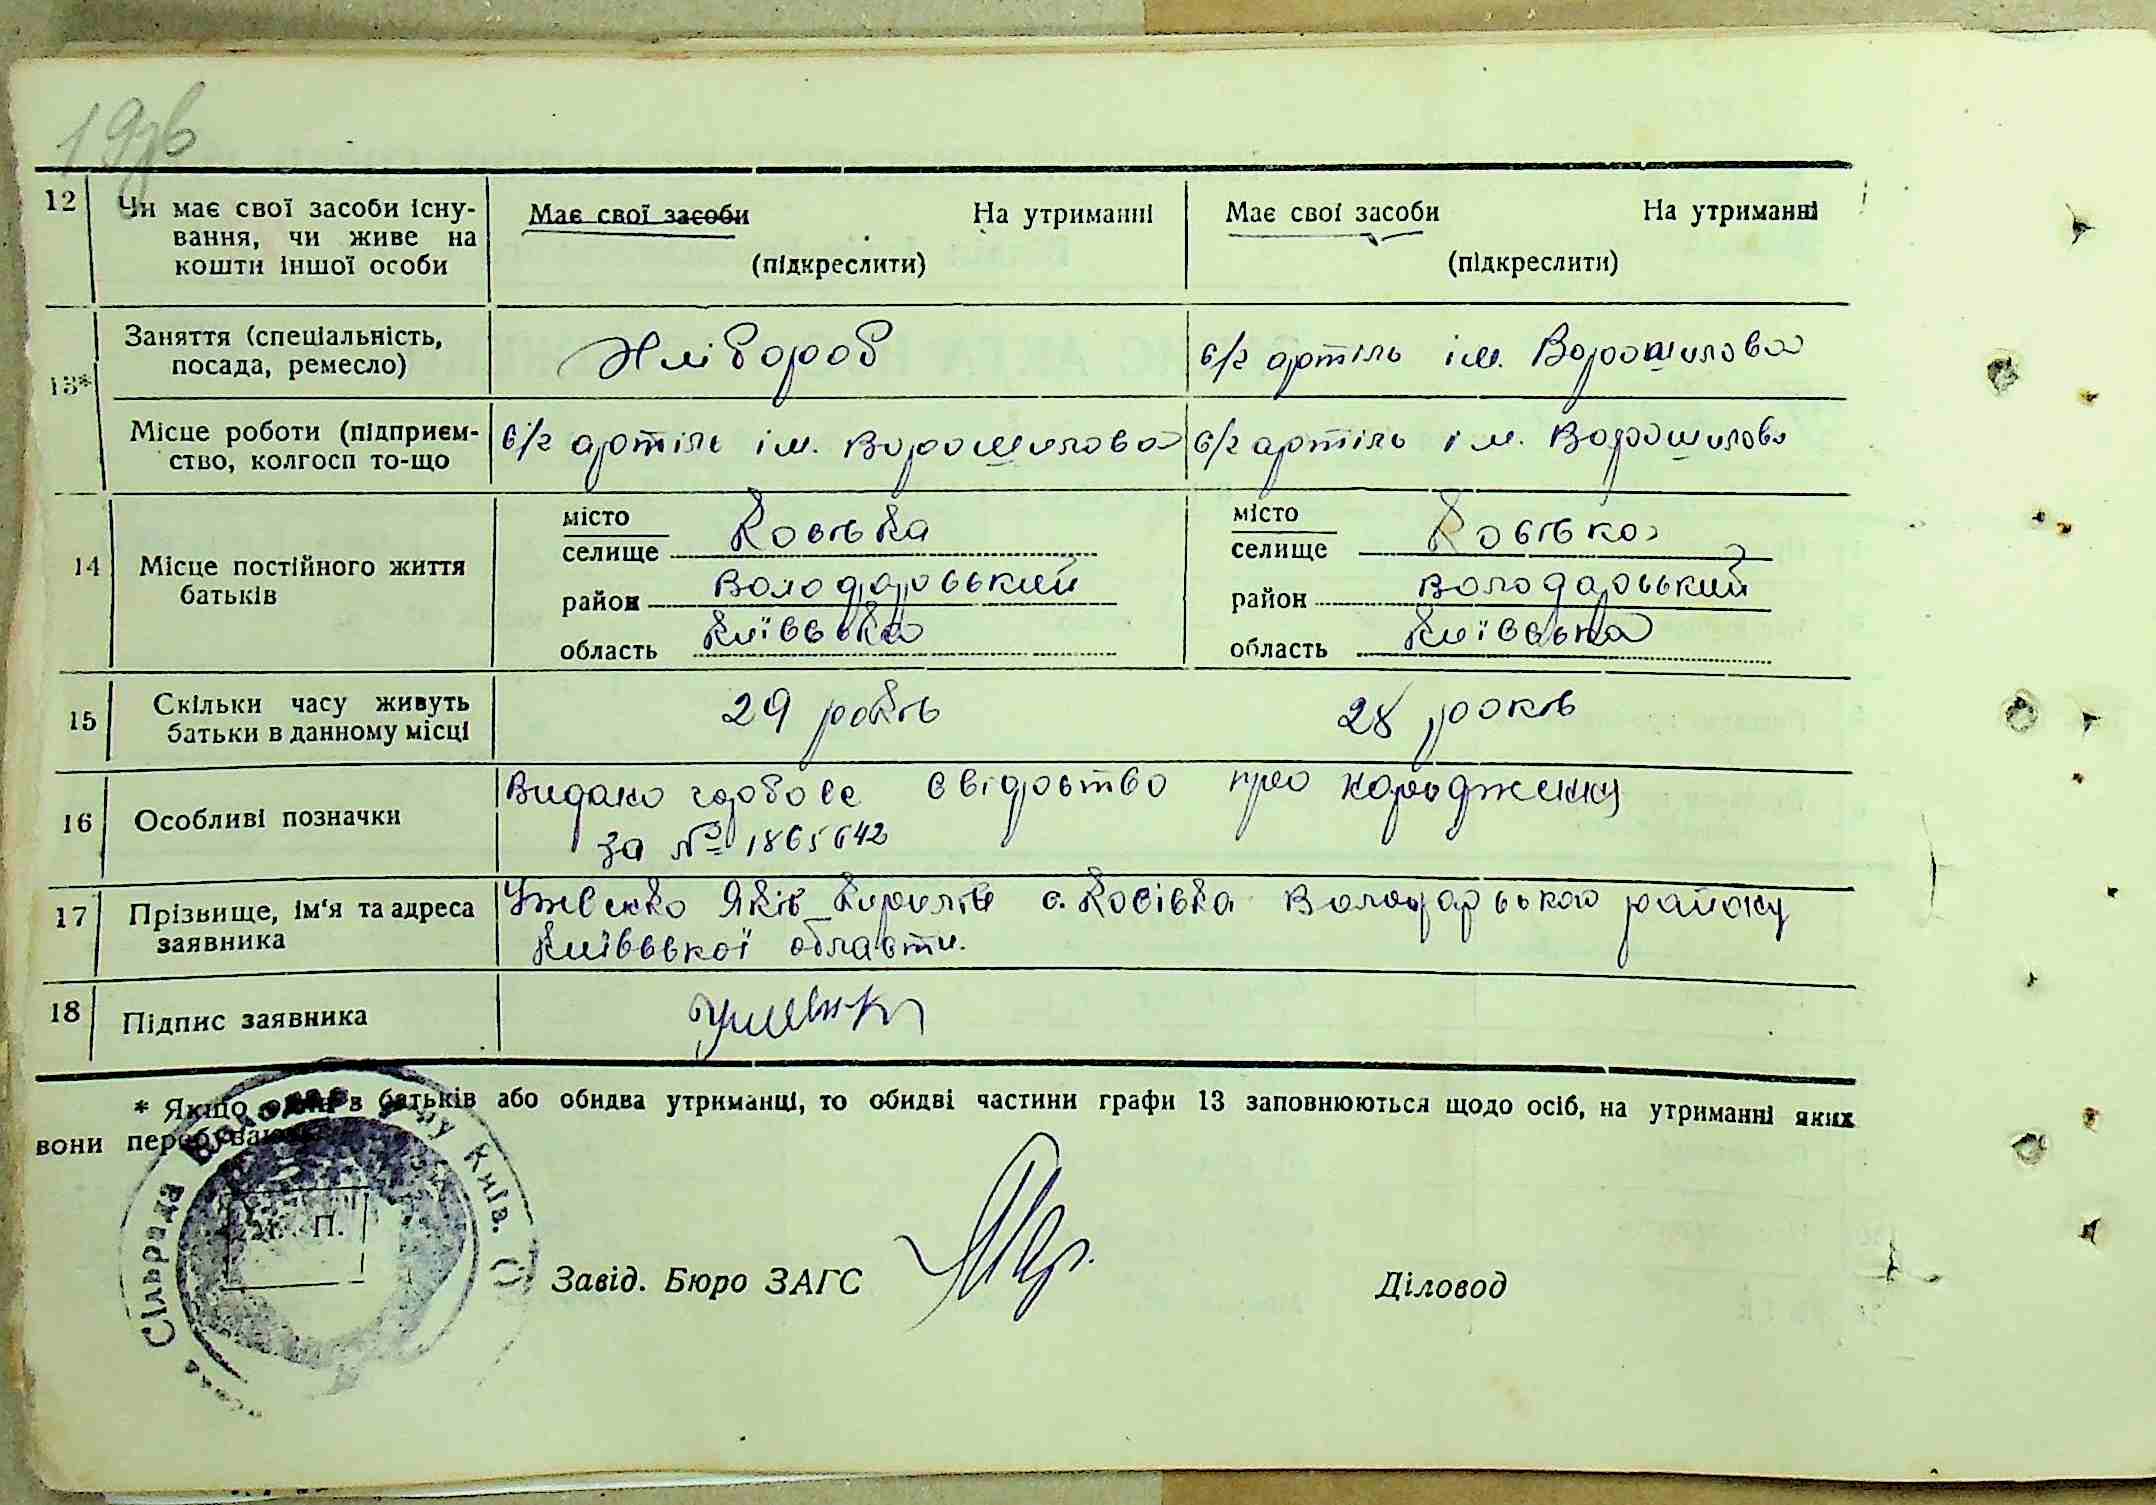 19зв
12 Чи має свої засоби існу-
вання, чи живе на
кошти іншої особи
Має свої засоби На утриманні
(підкреслити)
Має свої засоби На утриманні
(підкреслити)
13* Заняття (спеціальність,
посада, ремесло)
Хлібороб
с/г артіль ім. Ворошилова
Місце роботи (підприєм-
ство, колгосп то-що
с/г артіль ім. Ворошилова
с/г артіль ім. Ворошилова
14 Місце постійного життя
батьків
місто
селище Косівка
район Володарський
область Київська
місто
селище Косівка
район Володарський
область Київська
15 Скільки часу живуть
батьки в данному місці
29 років
28 років
16 Особливі позначки
Видано гербове свідоство про народження
за № 1865642
17 Прізвище, ім'я та адреса
заявника
Яків с. Косівка Володарського району
Київської області.
18 Підпис заявника
* Якщо один з батьків або обидва утриманці, то обидві частини графи 13 заповнюються щодо осіб, на утриманні яких
вони перебувають
Сільрада Київ.
М. П.
Завід. Бюро ЗАГС
Діловод